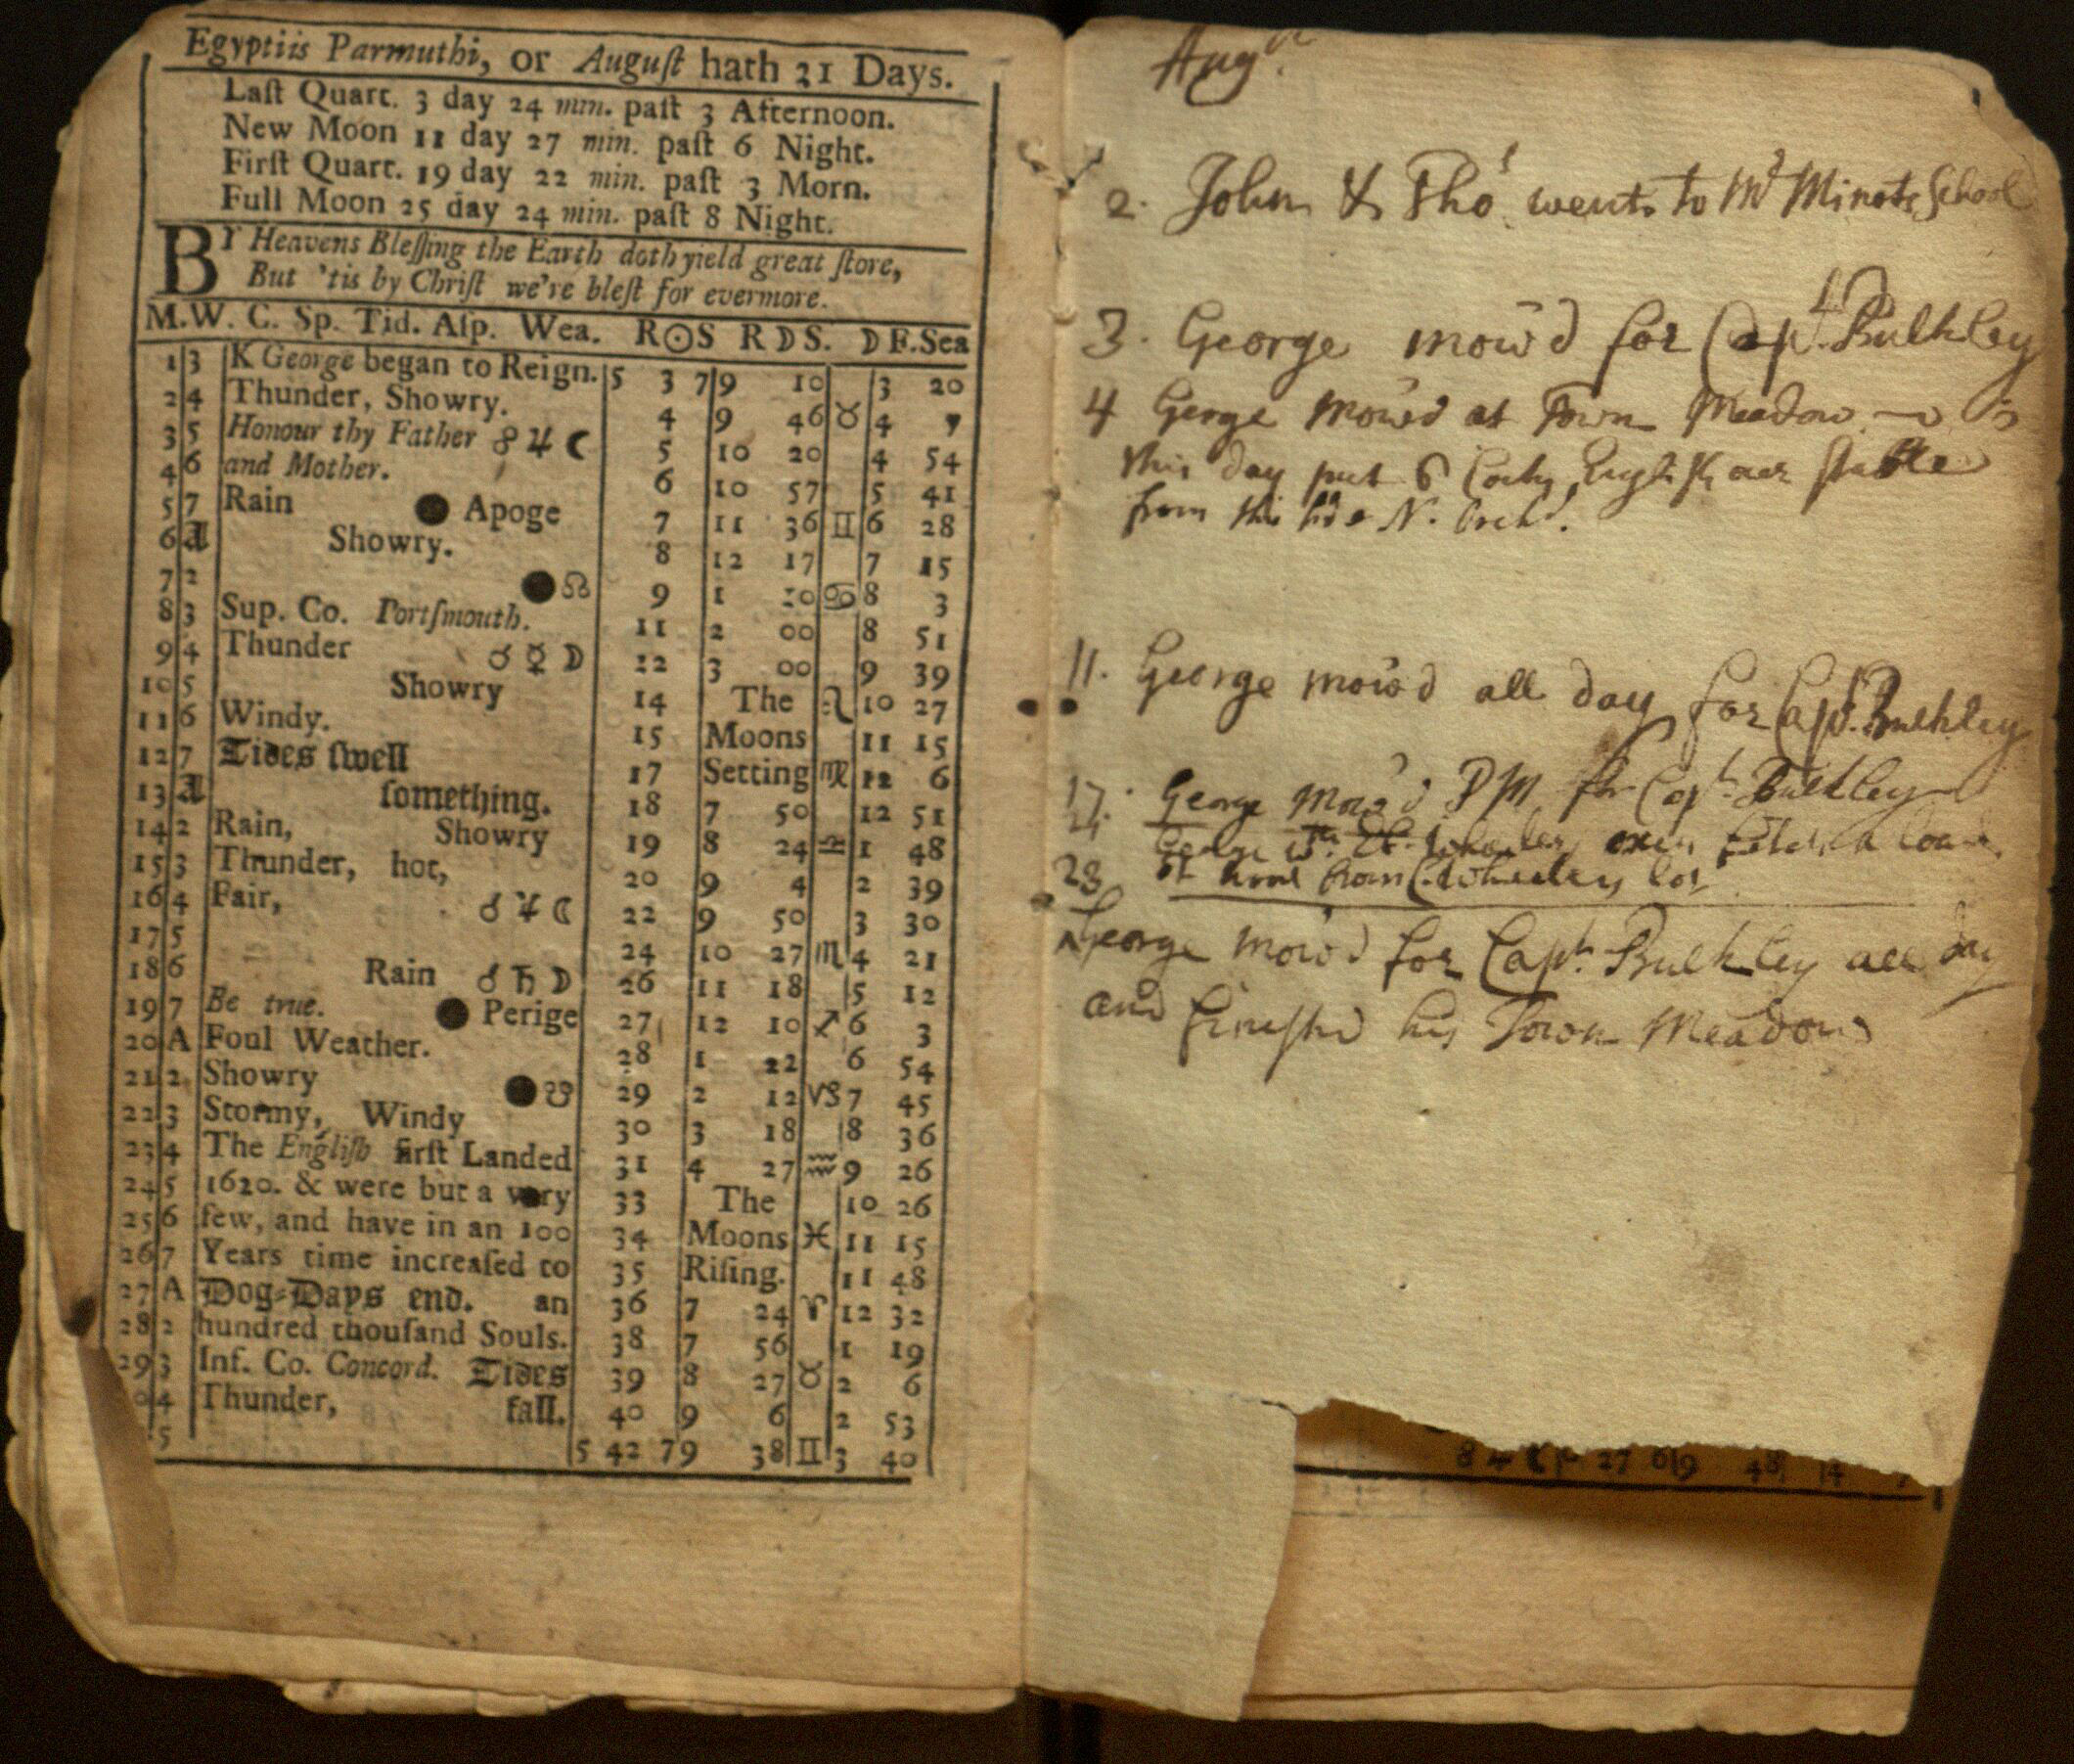 Egyptiis Parmuthi, or Auguſt hath 21 Days.
Laſt Quart. 3 day 24 min. paſt 3 Afternoon.
New Moon 11 day 27 min. paſt 6 Night.
Firſt Quart. 19 day 22 min. paſt 3 Morn.
Full Moon 25 day 24 min. paſt 8 Night.
BY Heavens Bleſſing the Earth doth yield great ſtore,
But 'tis by Chriſt we're bleſt for evermore.
M.W. C. Sp. Tid. Aſp. Wea. R☉S R☽S. ☽F.Sea
1 3 K George began to Reign. 5 3 7 9 10 3 20
2 4 Thunder, Showry. 4 9 46 ♉ 4 7
3 5 Honour thy Father ☍ ♃ ☾ 5 10 20 4 54
4 6 and Mother. 6 10 57 5 41
5 7 Rain ● Apoge 7 11 36 ♊ 6 28
6 A Showry. 8 12 17 7 15
7 2 ● ☊ 9 1 20 ♋ 8 3
8 3 Sup. Co. Portſmouth. 11 2 00 8 51
9 4 Thunder ☌ ☿ ☽ 12 3 00 9 39
10 5 Showry 14 The ♌ 10 27
11 6 Windy. 15 Moons 11 15
12 7 Tides ſwell 17 Setting ♍ 12 6
13 A ſomething. 18 7 50 12 51
14 2 Rain, Showry 19 8 24 ♎ 1 48
15 3 Thunder, hot, 20 9 4 2 39
16 4 Fair, ☌ ♃ ☾ 22 9 50 3 30
17 5 24 10 27 ♏ 4 21
18 6 Rain ☌ ♄ ☽ 26 11 18 5 12
19 7 Be true. ● Perige 27 12 10 ♐ 6 3
20 A Foul Weather. 28 1 22 6 54
21 2 Showry ● ☋ 29 2 12 ♑ 7 45
22 3 Stormy, Windy 30 3 18 8 36
23 4 The Engliſh firſt Landed 31 4 27 ♒ 9 26
24 5 1620. & were but a very 33 The 10 26
25 6 few, and have in an 100 34 Moons ♓ 11 15
26 7 Years time increaſed to 35 Riſing. 11 48
27 A Dog-Days end. an 36 7 24 ♈ 12 32
28 2 hundred thouſand Souls. 38 7 56 1 19
29 3 Inf. Co. Concord. Tides 39 8 27 ♉ 2 6
0 4 Thunder, fall. 40 9 6 2 53
5 5 42 7 9 38 ♊ 3 40
Augst
2. John & Tho's went to Mr Minots School
3. George mow'd for Capt. Bulkley
4 Gerge mow'd at Town Meadow
this day put 6 English our stable
from this side N. Orchd.
11. George mow'd all day for Capt. Bulkley
17. George Mow'd PM for Capt. Bulkley
George wth Wheeler oxen a load
28 of from Wheeler lot
George mow'd for Capt. Bulkley all day
and finishd his Town Meadow
8 4 27 6 9 48 14